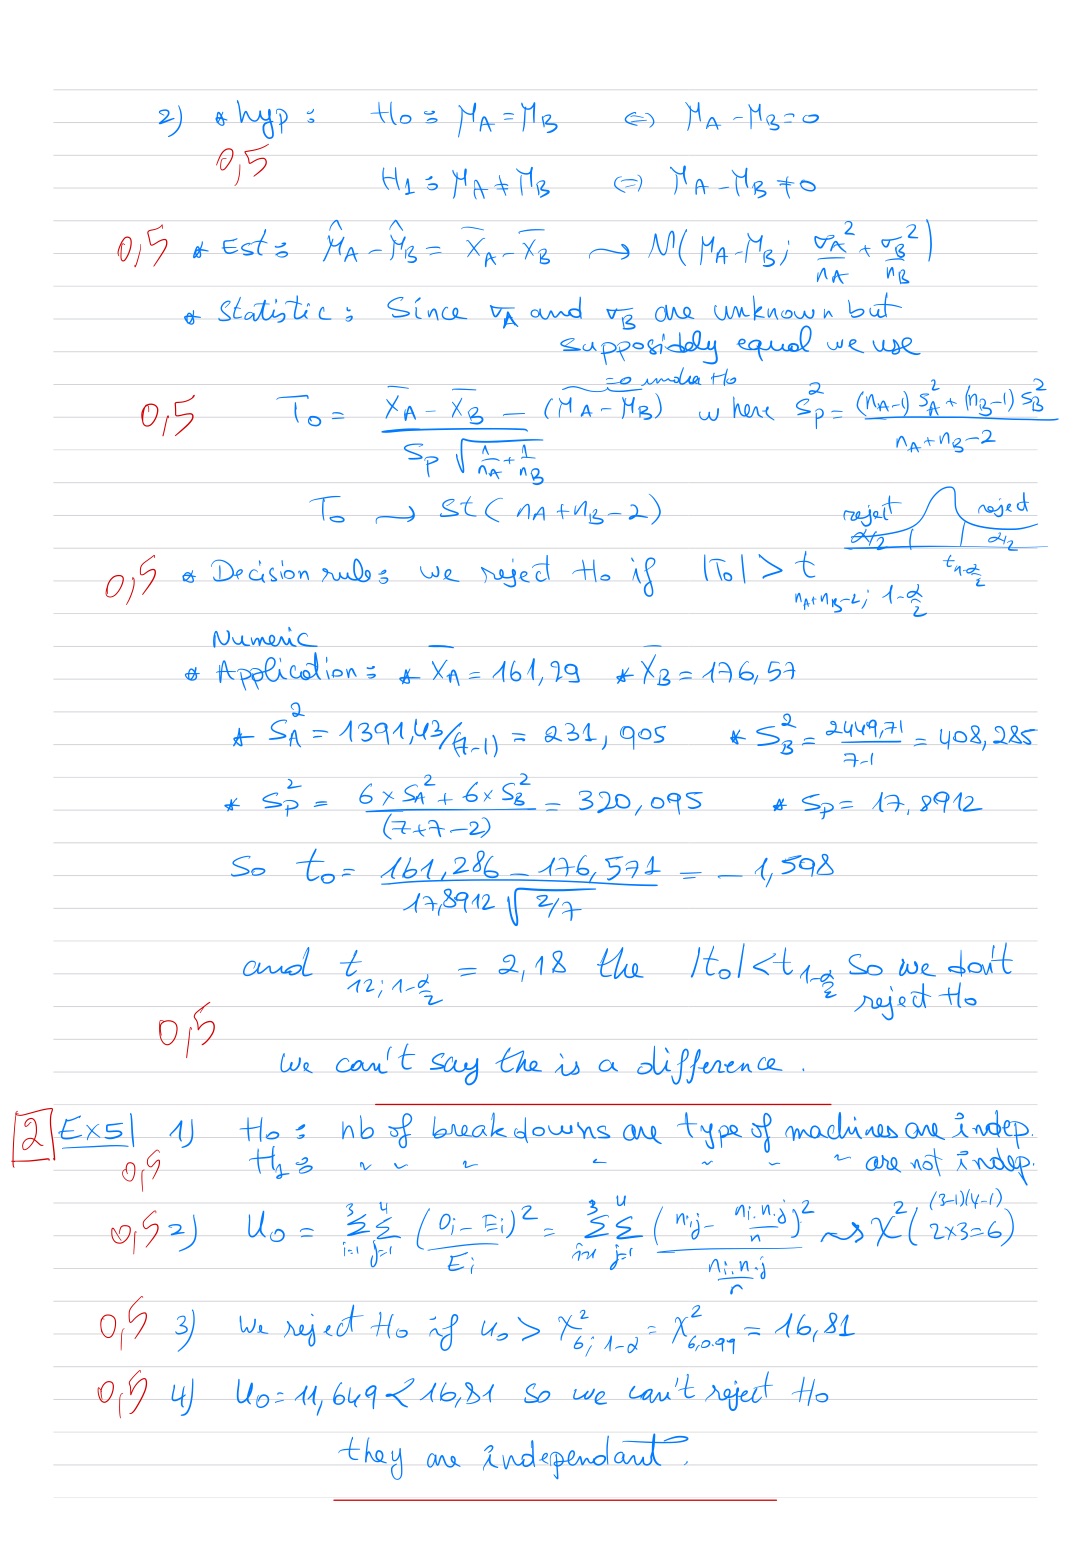 2) * hyp : H₀ : μA = μB ⇔ μA - μB = 0
0,5
H₁ : μA ≠ μB ⇔ μA - μB ≠ 0
0,5 * Est : μ̂A - μ̂B = X̄A - X̄B ⇝ N(μA - μB ; σA²/nA + σB²/nB)
* Statistic : Since σA and σB are unknown but
supposiddly equal we use
=0 under H₀
0,5 T₀ = (X̄A - X̄B - (μA - μB)) / (Sp √(1/nA + 1/nB)) where Sp² = ((nA-1) SA² + (nB-1) SB²) / (nA + nB - 2)
T₀ ⇝ St(nA + nB - 2)
reject reject
α/2 α/2
0,5 * Decision rule : we reject H₀ if |T₀| > t nA+nB-2 ; 1-α/2
t 1-α/2
Numeric
* Application : * X̄A = 161,29 * X̄B = 176,57
* SA² = 1391,43/(7-1) = 231,905 * SB² = 2449,71/7-1 = 408,285
* Sp² = (6 × SA² + 6 × SB²) / (7+7-2) = 320,095 * Sp = 17,8912
So t₀ = (161,286 - 176,571) / (17,8912 √(2/7)) = -1,598
and t 12; 1-α/2 = 2,18 the |t₀| < t 1-α/2 so we don't
reject H₀
0,5
we can't say the is a difference.
2 Ex5| 1) H₀ : nb of breakdowns are type of machines are indep.
0,5 H₁ : " " " " " " " are not indep.
0,5 2) U₀ = Σ(i=1→3) Σ(j=1→4) (Oi - Ei)²/Ei = Σ(i=1→3) Σ(j=1→4) (nij - ni. n.j/n)² / (ni. n.j/n) ⇝ χ²( (3-1)(4-1) 2×3=6)
0,5 3) We reject H₀ if u₀ > χ² 6; 1-α = χ² 6,0.99 = 16,81
0,5 4) U₀ = 11,649 < 16,81 so we can't reject H₀
they are independant.